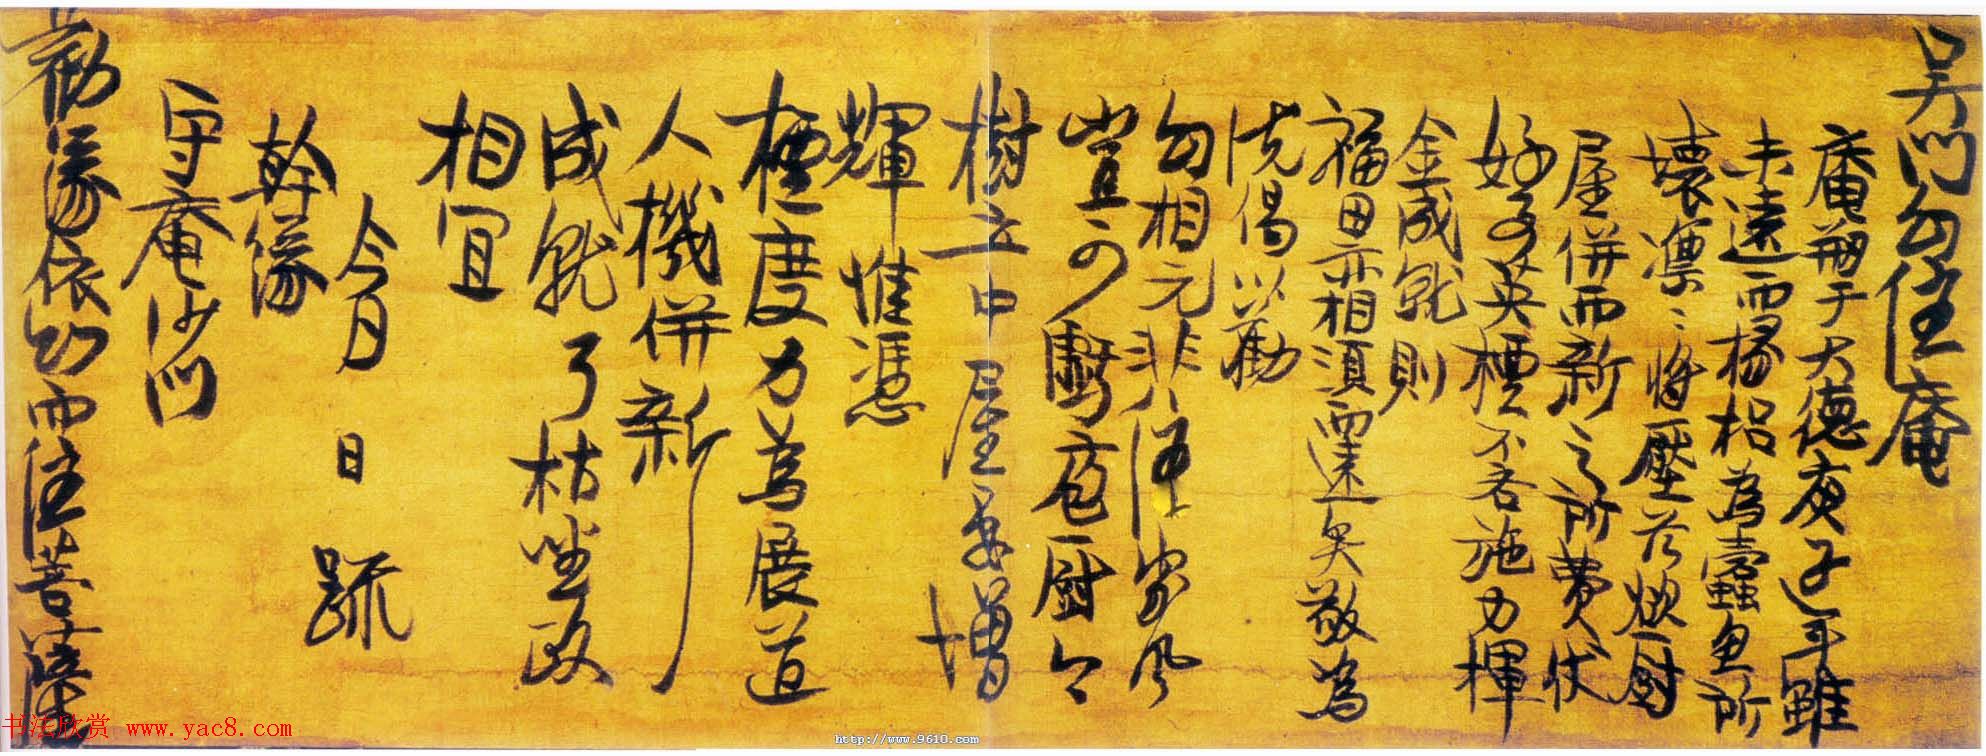 吴门幻住庵
庵剏于大德庚子迄年雖
未遠而椽梠為蠹虫所
壞凛〻將壓於燬厨
屋併而新之所費伏
好事英標不吝施力揮
金成就則
福田亦相須而遠矣敬為
說偈以勸
幻相元非住家風
豈可虧庖厨今
樹立口屋要增
輝惟憑
檀度力為展道
人機併新
成就了枯坐政
相宜
今月日疏
幹緣
守庵沙門
勸緣依幻而住菩薩
书法欣赏 www.yac8.com
http://www.9610.com